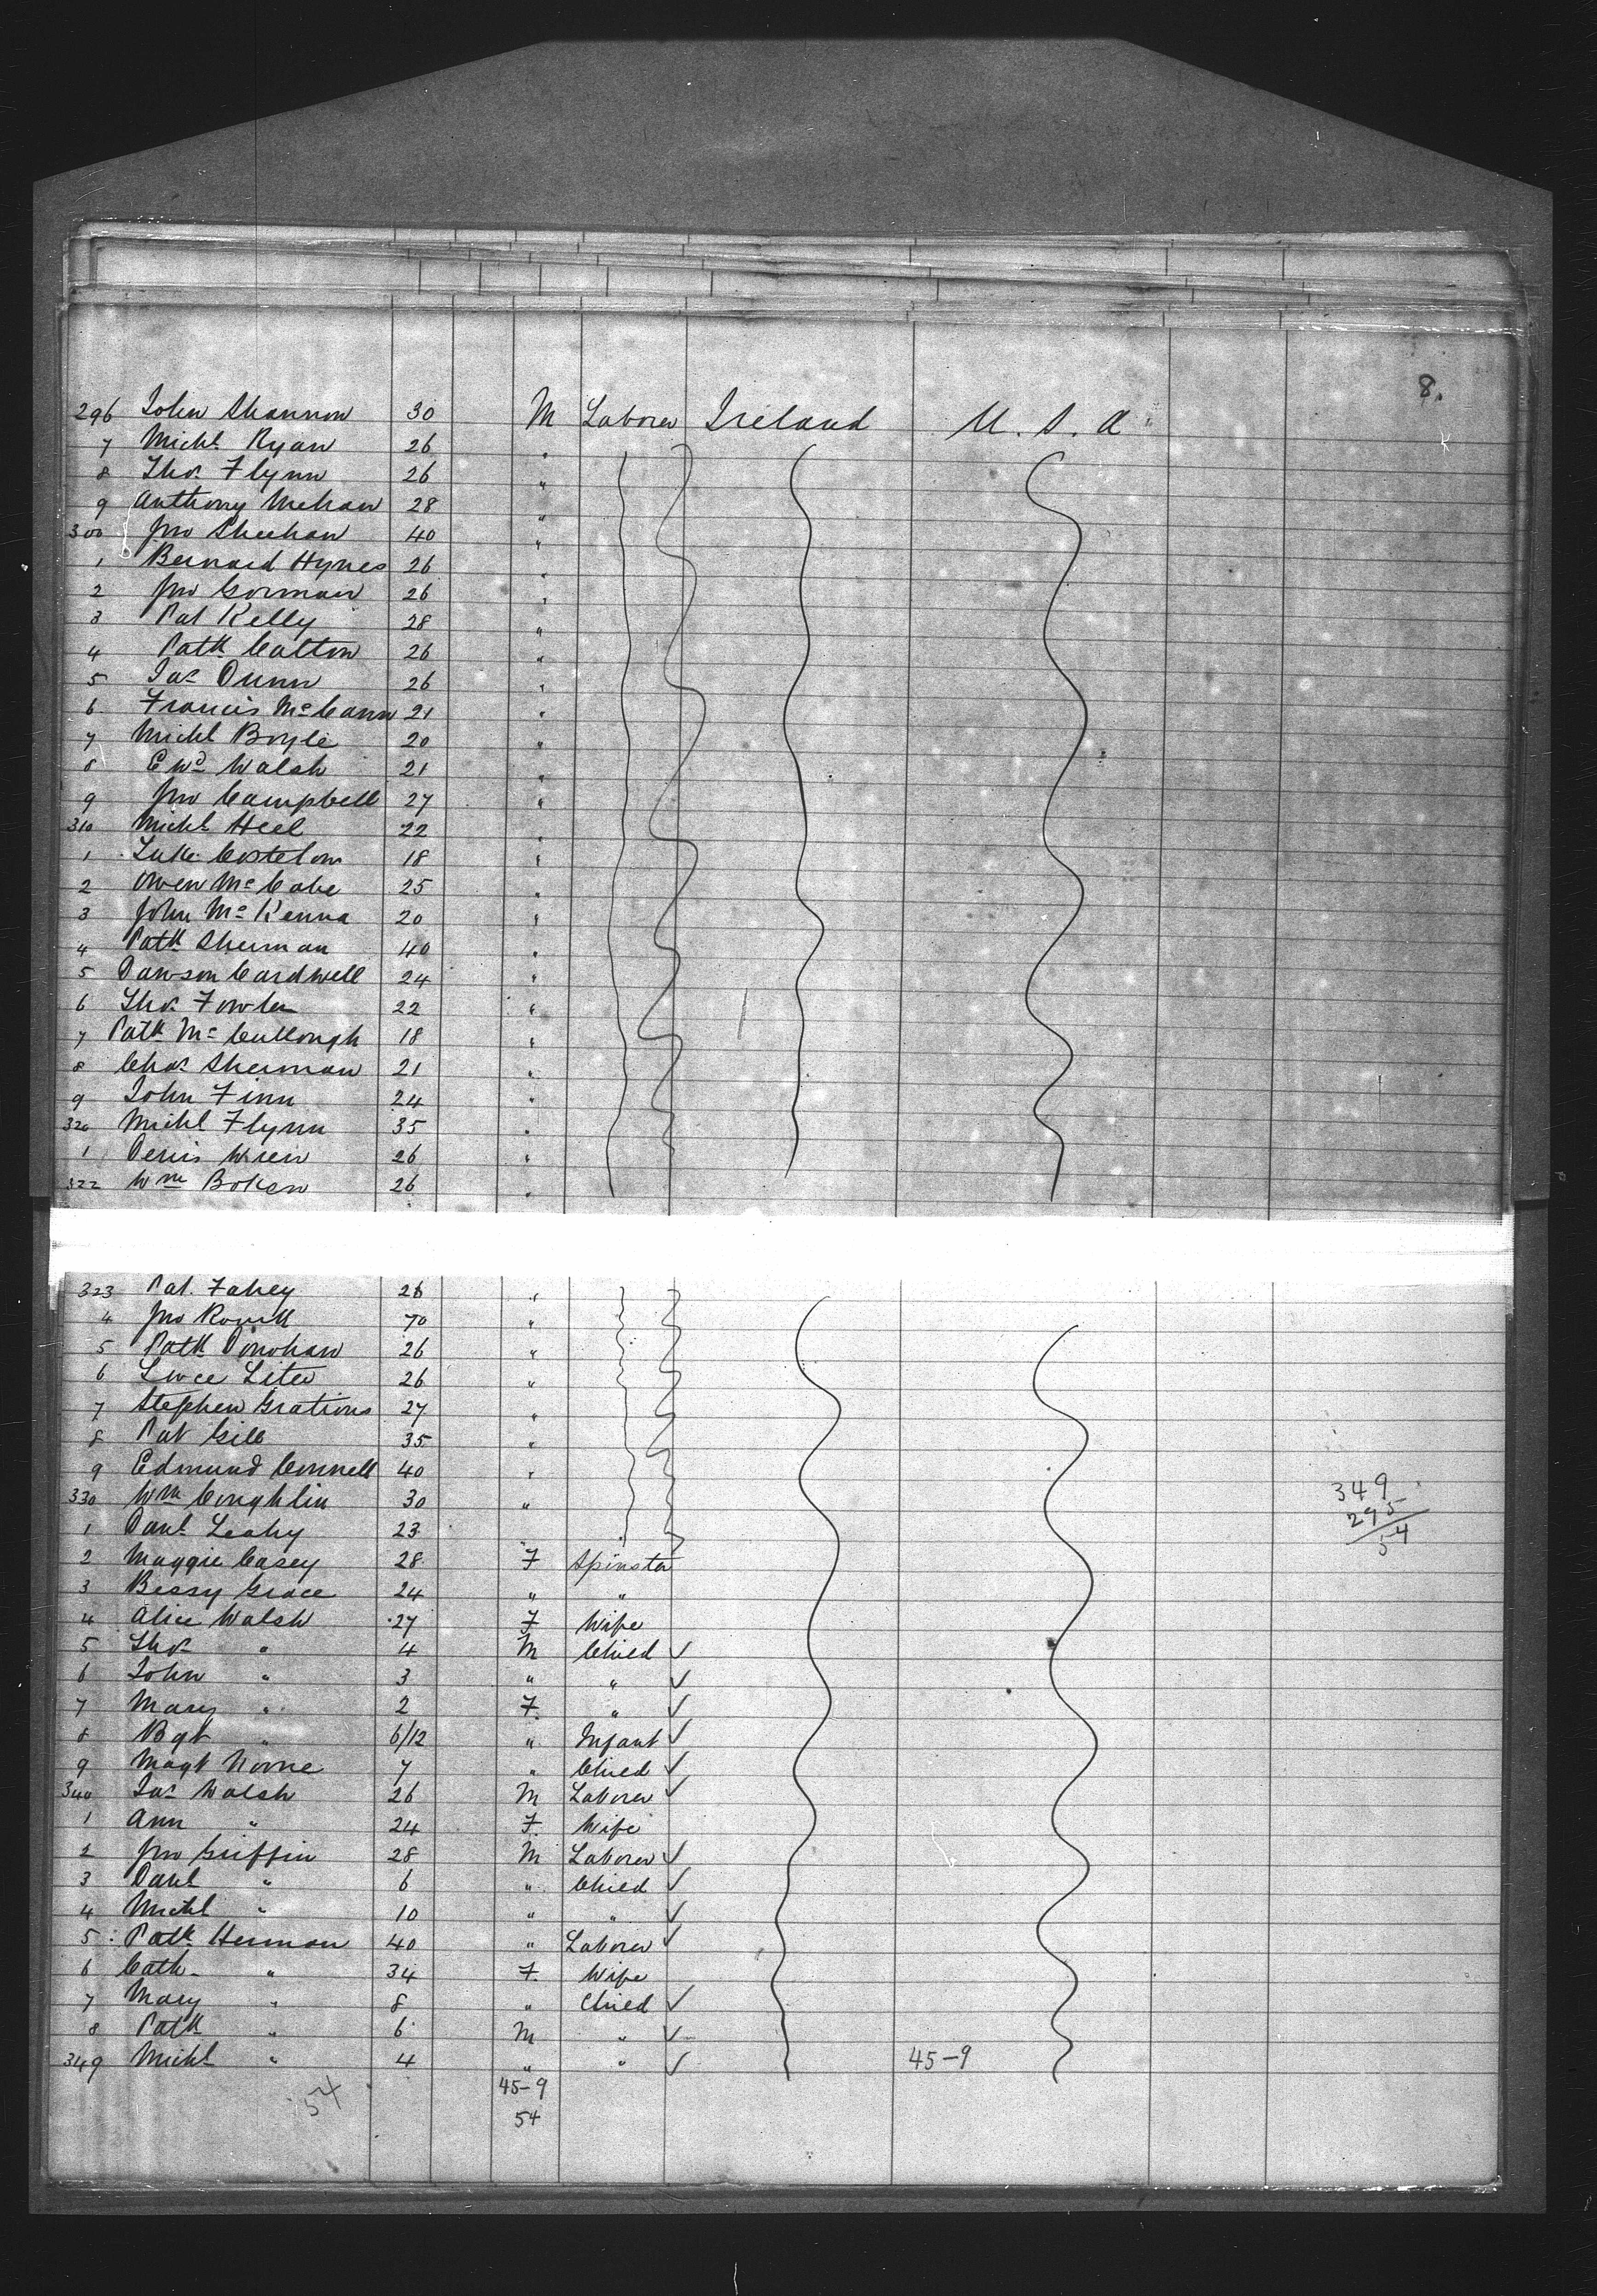 8.
296 John Shannon 30 M Laborer Ireland U. S. A
7 Michl Ryan 26 "
8 Thos Flynn 26 "
9 Anthony Mehan 28 "
300 Jno Sheehan 40 "
1 Bernard Hynes 26 "
2 Jno Gorman 26 "
3 Pat Kelly 28 "
4 Patk Calton 26 "
5 Jas Dunn 26 "
6 Francis McCann 21 "
7 Michl Boyle 20 "
8 Ewd Walsh 21 "
9 Jno Campbell 27 "
310 Michl Heel 22 "
1 Luke Costelow 18 "
2 Owen McCabe 25 "
3 John McKenna 20 "
4 Patk Sherman 40 "
5 Dawson Cardwell 24 "
6 Thos Fowler 22 "
7 Patk McCullough 18 "
8 Chas Sherman 21 "
9 John Finn 24 "
320 Michl Flynn 35 "
1 Denis Wren 26 "
322 Wm Boken 26 "
323 Pat. Fahey 26 "
4 Jno 70 "
5 Patk Donohan 26 "
6 26 "
7 Stephen Grations 27 "
8 Pat Gill 35 "
9 Edmund Connell 40 "
330 Wm Coughlin 30 "
349
295
54
1 Danl Leahy 23 "
2 Maggie Casey 28 F Spinster
3 Bessy Grace 24 " "
4 Alice Walsh 27 F Wife
5 Thos " 4 M Child ✓
6 John " 3 " " ✓
7 Mary " 2 F " ✓
8 Bgt " 6/12 " Infant ✓
9 Magt 7 " Child ✓
340 Jas Walsh 26 M Laborer ✓
1 Ann " 24 F Wife
2 Jno Griffin 28 M Laborer ✓
3 Danl " 6 " Child ✓
4 Michl " 10 " " ✓
5 Patk Herman 40 " Laborer ✓
6 Cath " 34 F Wife
7 Mary " 8 " Child ✓
8 Patk " 6 M " ✓
349 Michl " 4 " " ✓ 45-9
54 45-9
54